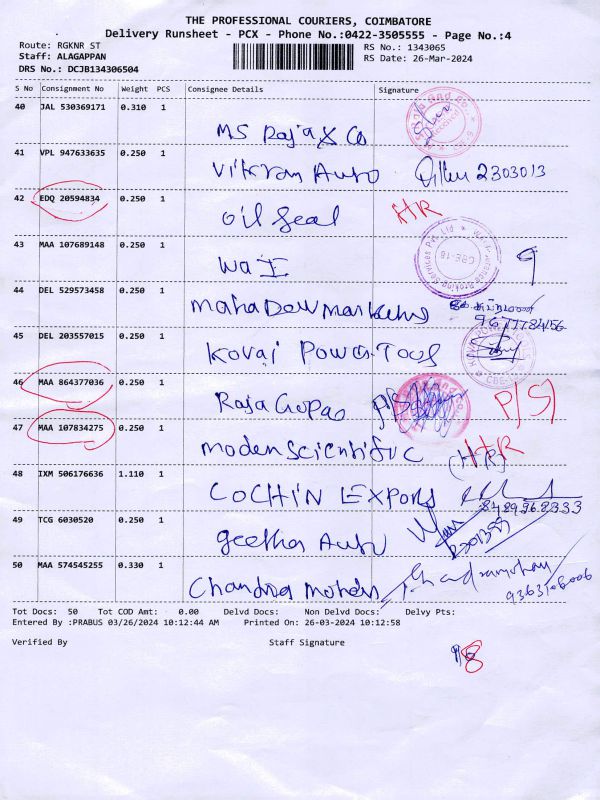 THE PROFESSIONAL COURIERS, COIMBATORE
Delivery Runsheet - PCX - Phone No.:0422-3505555 - Page No.:4
Route: RGKNR ST RS No.: 1343065
Staff: ALAGAPPAN RS Date: 26-Mar-2024
DRS No.: DCJB134306504
S No Consignment No Weight PCS Consignee Details Signature
40 JAL 530369171 0.310 1
MS Raja & Co
41 VPL 947633635 0.250 1
Vikram Auto 2303013
42 EDQ 20594834 0.250 1
Oil Seal HR
43 MAA 107689148 0.250 1
44 DEL 529573458 0.250 1
9677784156
45 DEL 203557015 0.250 1
Kovai Power Tools
46 MAA 864377036 0.250 1
Raja Gopal P/S
47 MAA 107834275 0.250 1
Moden Scientific (HR) HR
48 IXM 506176636 1.110 1
COCHIN EXPORS
8489968333
49 TCG 6030520 0.250 1
Geetha Auto
50 MAA 574545255 0.330 1
Chandra Mohan Chandramohan
9363106006
Tot Docs: 50 Tot COD Amt: 0.00 Delvd Docs: Non Delvd Docs: Delvy Pts:
Entered By :PRABUS 03/26/2024 10:12:44 AM Printed On: 26-03-2024 10:12:58
Verified By Staff Signature
8